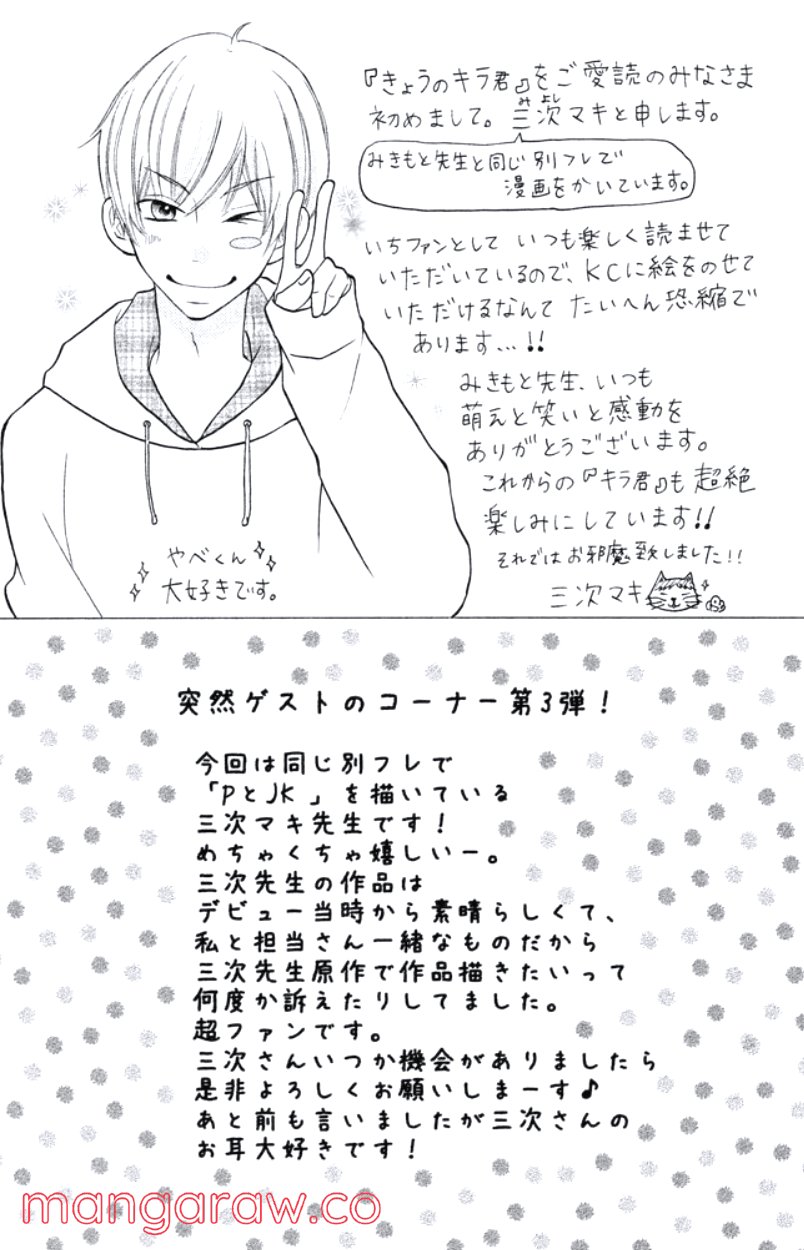 『きょうのキラ君』をご愛読のみなさま
初めまして。三次マキと申します。
みよし
みきもと先生と同じ別フレで
漫画をかいています。
いちファンとして いつも楽しく読ませて
いただいているので、KCに絵をのせて
いただけるなんて たいへん恐縮で
あります...!!
みきもと先生、いつも
萌えと笑いと感動を
ありがとうございます。
これからの『キラ君』も超絶
楽しみにしています!!
それではお邪魔致しました!!
三次マキ
やべくん
大好きです。
突然ゲストのコーナー第3弾！
今回は同じ別フレで
「PとJK」を描いている
三次マキ先生です！
めちゃくちゃ嬉しいー。
三次先生の作品は
デビュー当時から素晴らしくて、
私と担当さん一緒なものだから
三次先生原作で作品描きたいって
何度か訴えたりしてました。
超ファンです。
三次さんいつか機会がありましたら
是非よろしくお願いしまーす♪
あと前も言いましたが三次さんの
お耳大好きです！
mangaraw.co